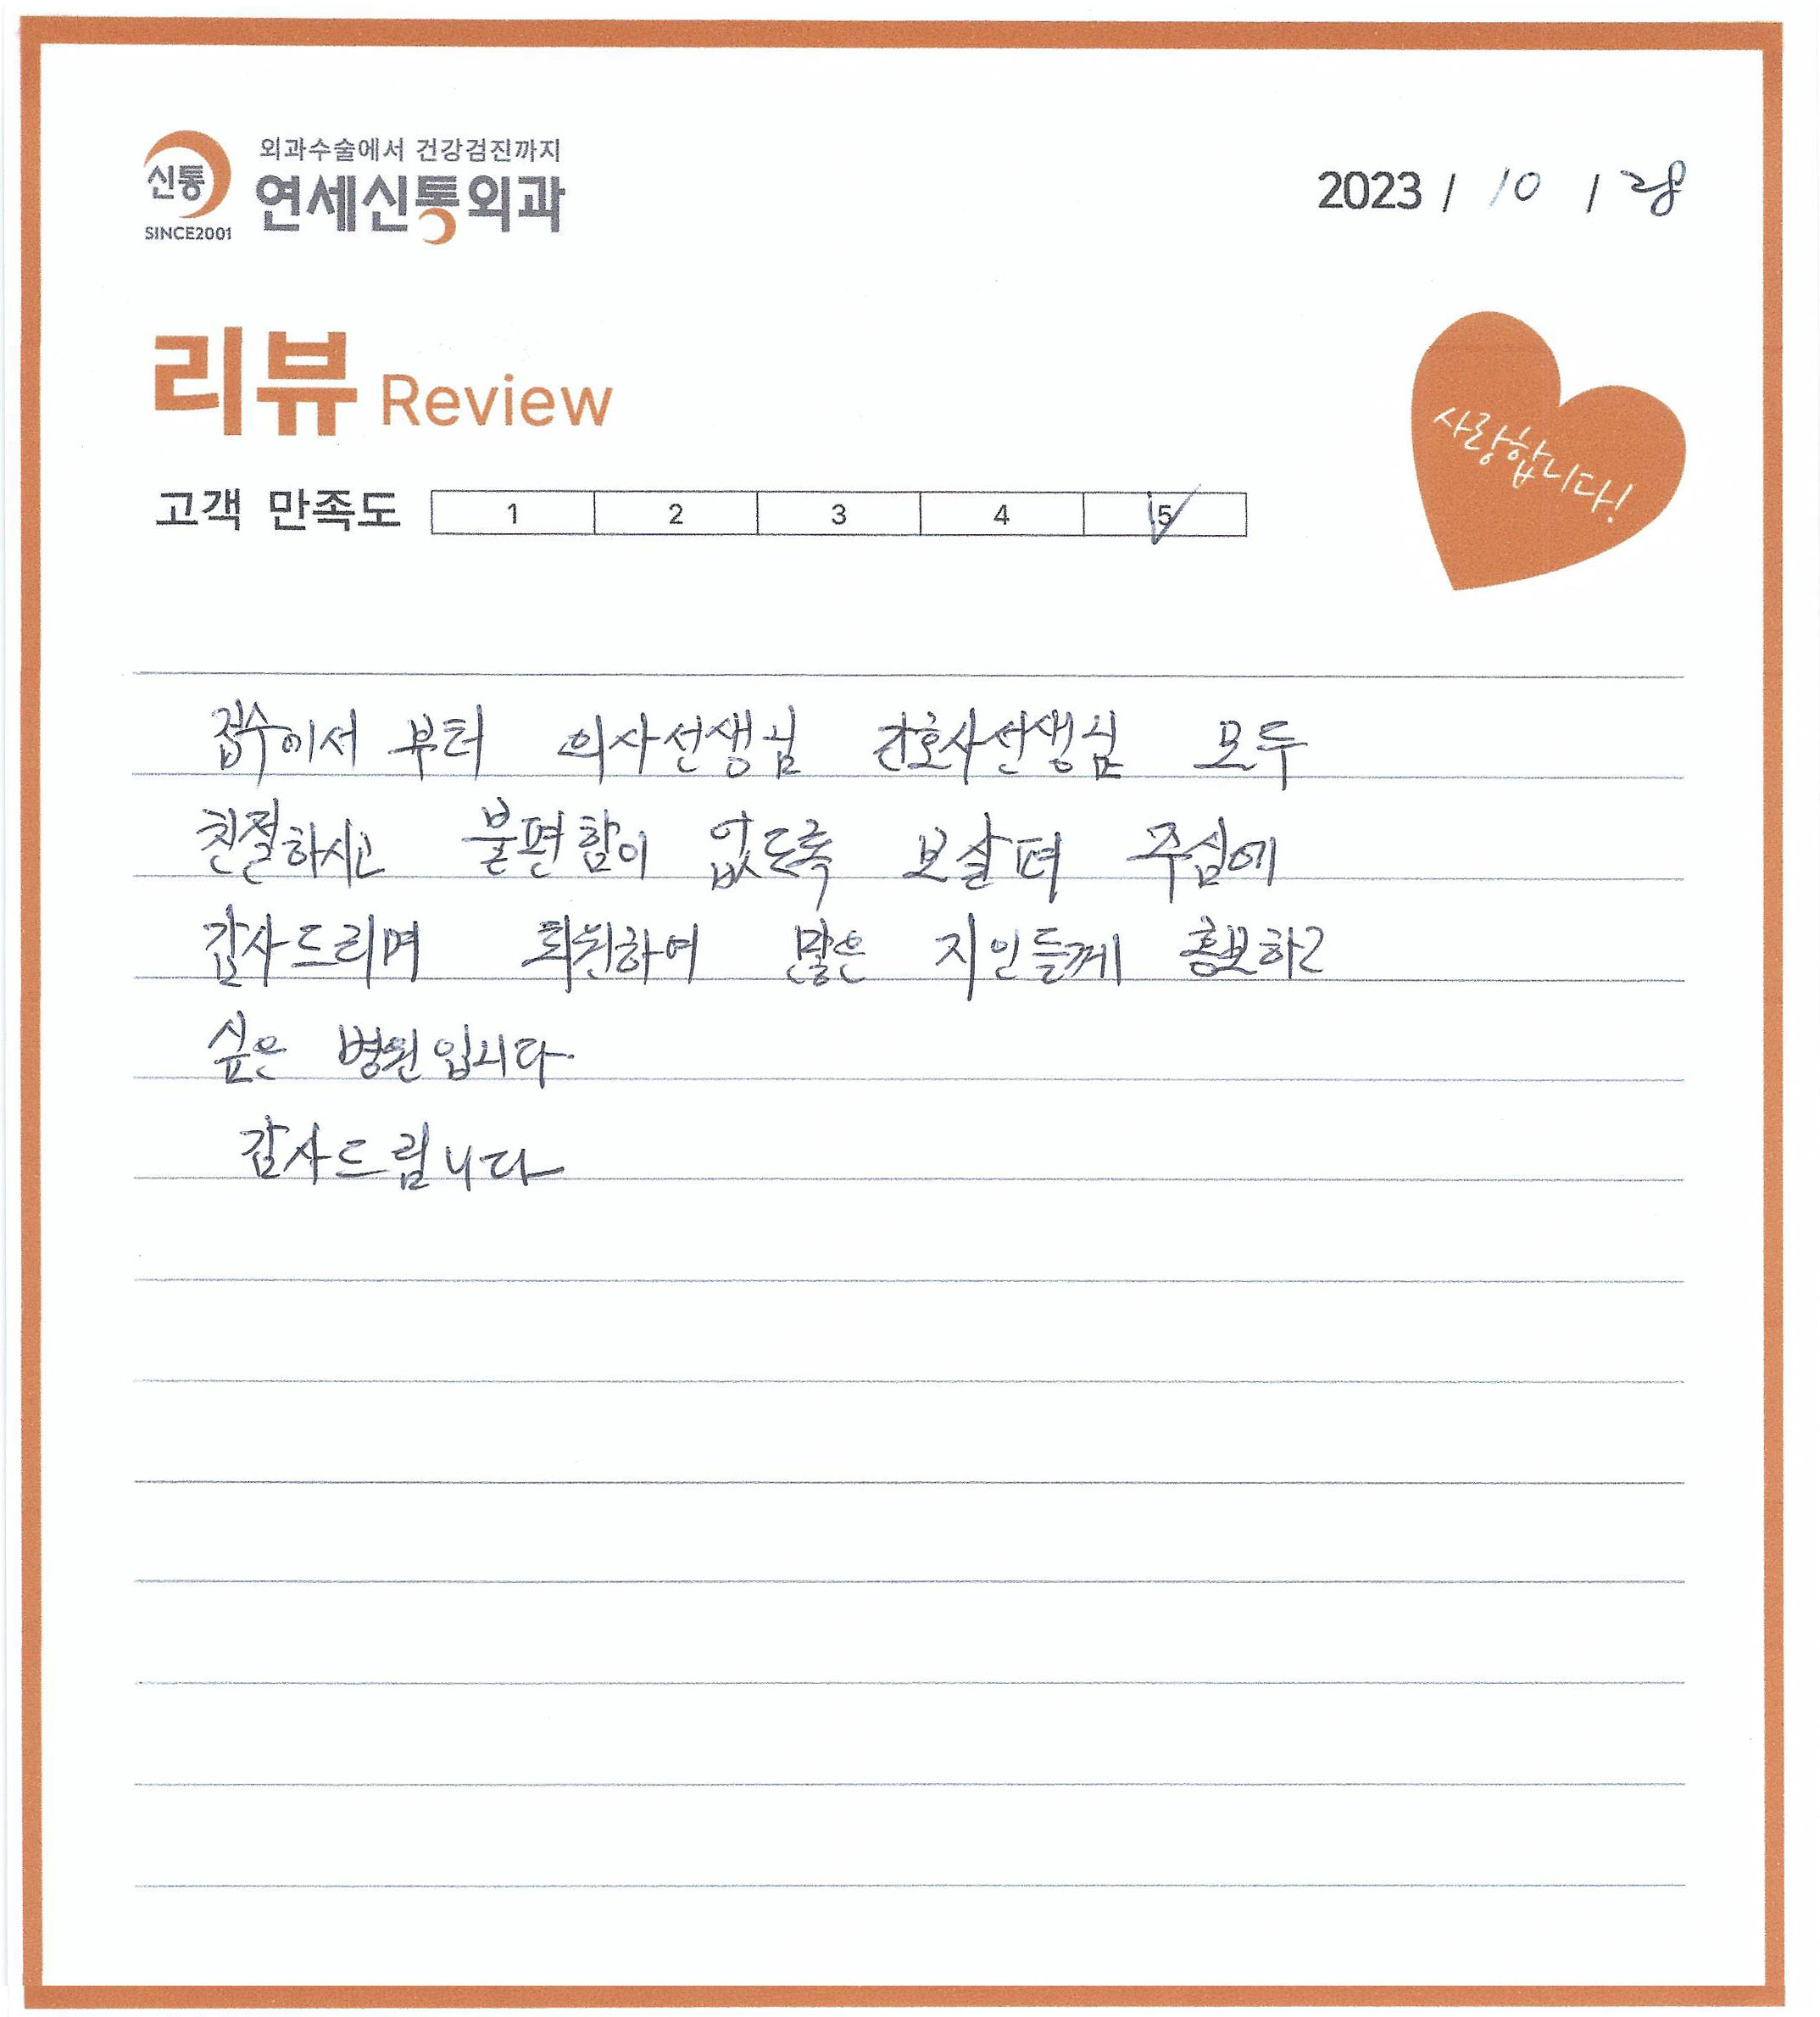 신통
SINCE2001
외과수술에서 건강검진까지
연세신통외과
2023 / 10 / 28
리뷰 Review
사랑합니다!
고객 만족도 1 2 3 4 5
접수에서 부터 의사선생님 간호사선생님 모두
친절하시고 불편함이 없도록 보살펴 주심에
감사드리며 퇴원하여 많은 지인들께 홍보하고
싶은 병원입니다.
감사드립니다